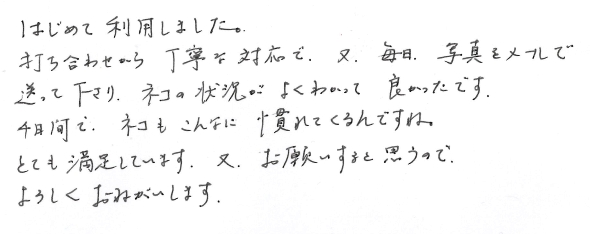 はじめて利用しました。
打ち合わせから丁寧な対応で、又、毎日、写真をメールで
送って下さり、ネコの状況がよくわかって良かったです。
4日間で、ネコもこんなに慣れてくるんですね。
とても満足しています。又、お願いすると思うので、
よろしくおねがいします。